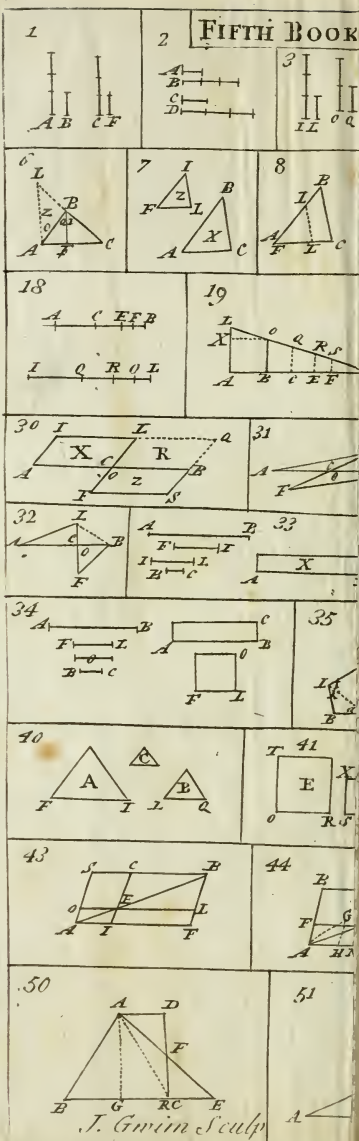 FIFTH BOOK
1
A B C F
2
A
B
C
D
3
I L O Q
6
L
Z B
O
A F C
7
I
Z
F L
B
X
A C
8
B
I
A
F L C
18
A C E F B
I Q R O L
19
L
X O Q R S
A B C E F
30
I L Q
X R
A C O B
Z
F S
31
A C
O
F
32
L
A C O B
F
33
A B
F I
I L
B C
X
A
34
A B
F L
O
B C
C
A B
O
F L
35
I
B
40
A C B
F I L Q
41
T
E X
O R S
43
S C B
E
O L
A I F
44
B
F G
A H N
50
A D
F
B G R C E
51
A
J. Gwim Sculp